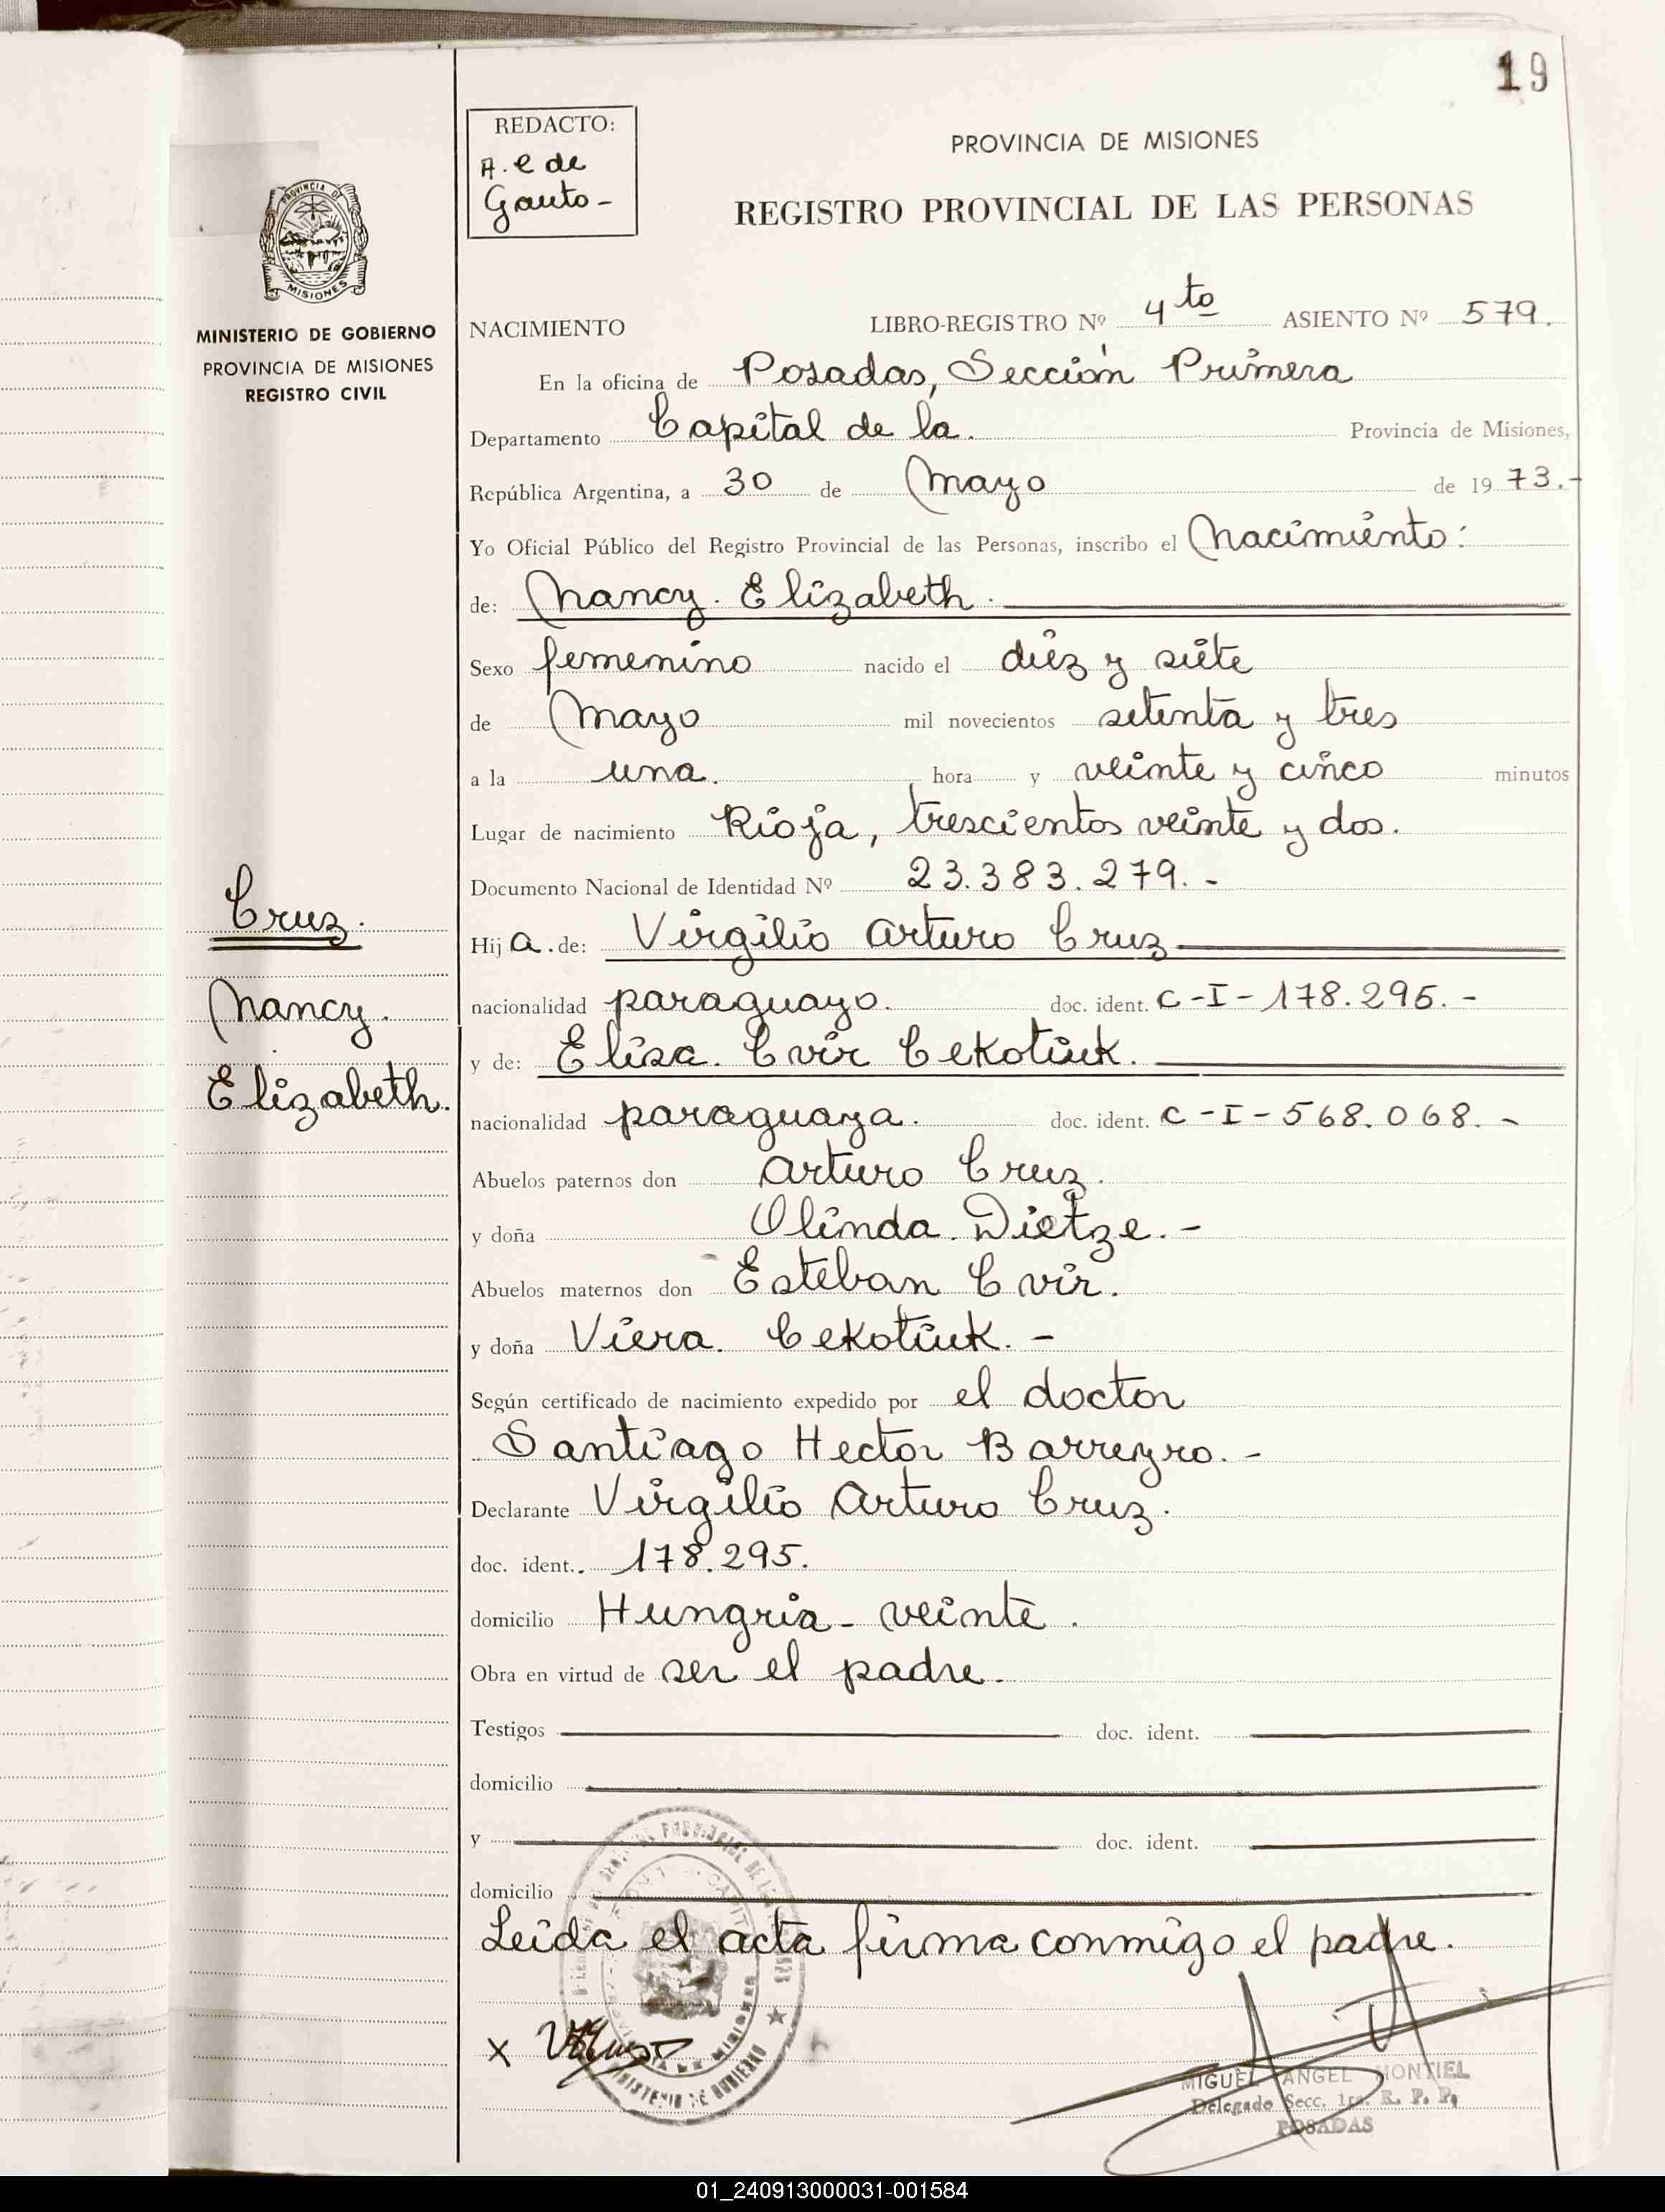 19
REDACTO:
A. e de
Gauto-
PROVINCIA DE MISIONES
REGISTRO PROVINCIAL DE LAS PERSONAS
PROVINCIA DE
MISIONES
MINISTERIO DE GOBIERNO
PROVINCIA DE MISIONES
REGISTRO CIVIL
NACIMIENTO LIBRO-REGISTRO Nº 4to ASIENTO Nº 579.
En la oficina de Posadas, Sección Primera
Departamento Capital de la. Provincia de Misiones,
República Argentina, a 30 de Mayo de 1973.-
Yo Oficial Público del Registro Provincial de las Personas, inscribo el Nacimiento:
de: Nancy. Elizabeth.
Sexo femenino nacido el diez y siete
de Mayo mil novecientos setenta y tres
a la una. hora y veinte y cinco minutos
Lugar de nacimiento Rioja, trescientos veinte y dos.
Documento Nacional de Identidad Nº 23.383.279.-
Hija. de: Virgilio Arturo Cruz
nacionalidad paraguayo. doc. ident. C-I-178.295.-
y de: Elisa. Cvir Cekotiuk.
nacionalidad paraguaya. doc. ident. C-I-568.068.-
Abuelos paternos don Arturo Cruz.
y doña Olinda. Dietze.-
Abuelos maternos don Esteban Cvir.
y doña Viera. Cekotiuk.-
Según certificado de nacimiento expedido por el doctor
Santiago Hector Barreyro.-
Declarante Virgilio Arturo Cruz.
doc. ident.. 178.295.
domicilio Hungria- veinte.
Obra en virtud de ser el padre.
Testigos doc. ident.
domicilio
y doc. ident.
domicilio
Leida el acta firma conmigo el padre.
Cruz.
Nancy.
Elizabeth.
X
MINISTERIO DE GOBIERNO
MIGUEL ANGEL MONTIEL
Delegado Secc. 1ra. R. P. P.
POSADAS
01_240913000031-001584